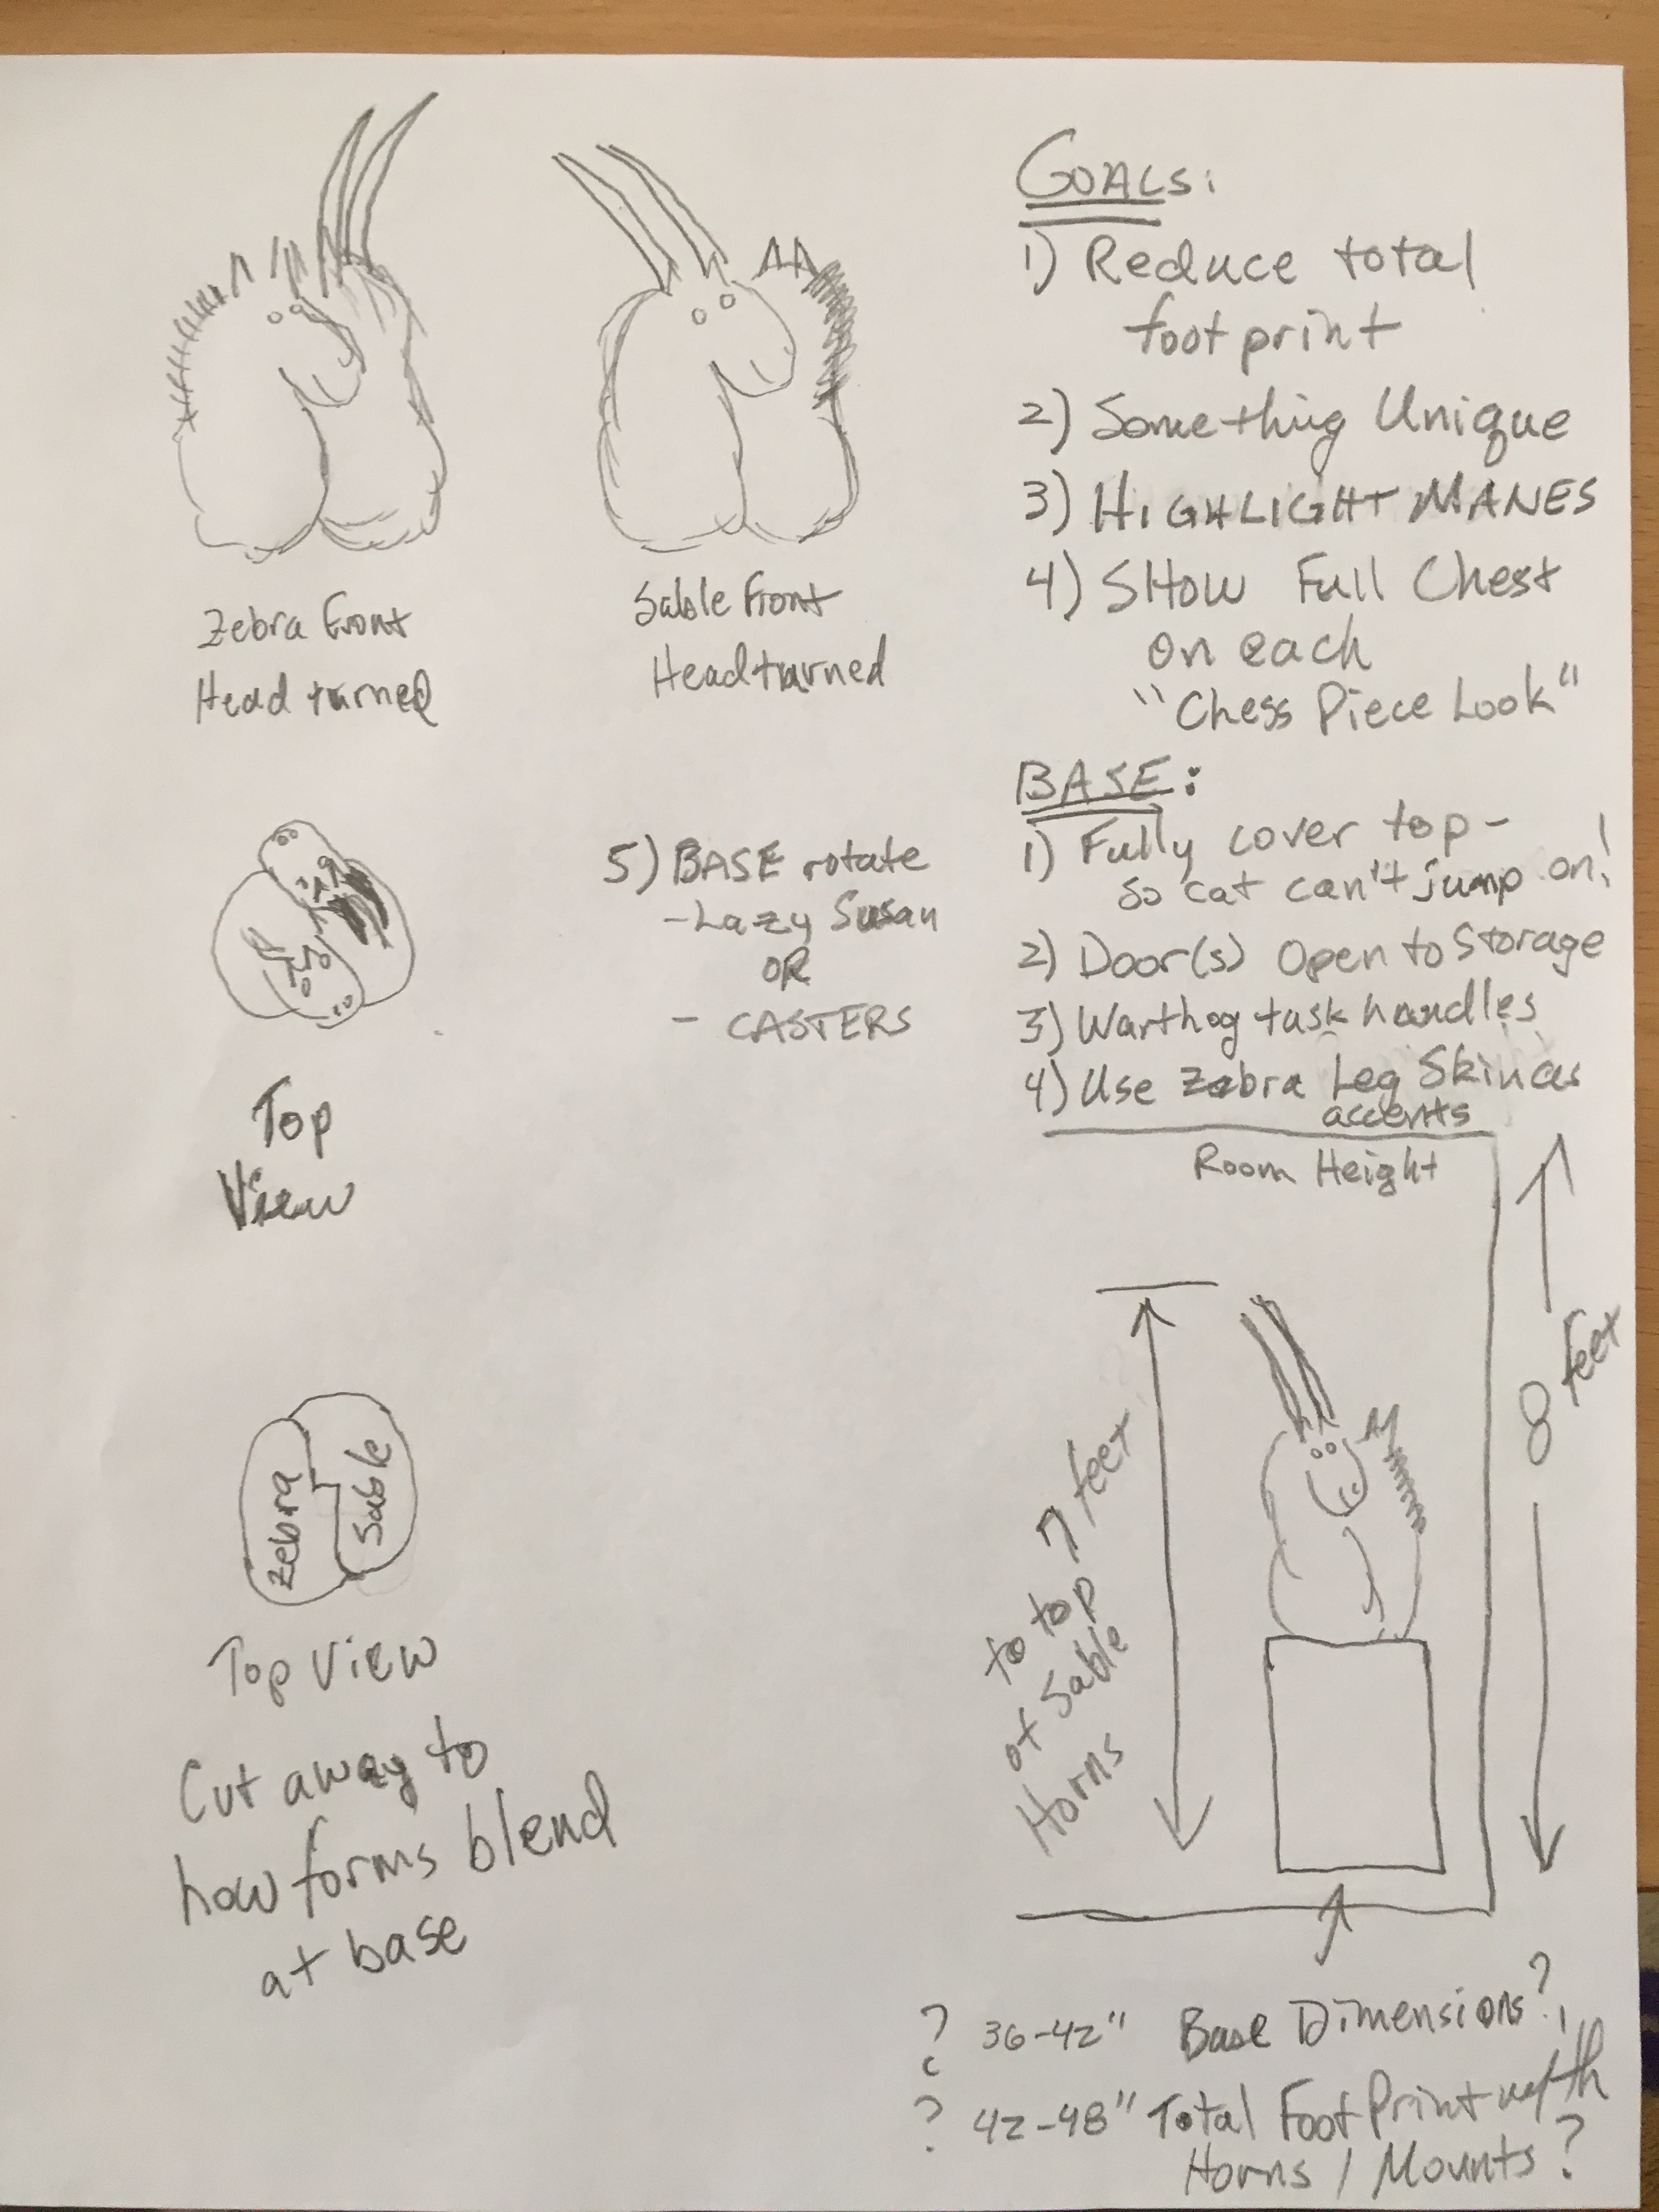 GOALS:
1) Reduce total
foot print
2) Something Unique
3) HIGHLIGHT MANES
4) SHOW Full Chest
on each
"Chess Piece Look"
Zebra Front
Head turned
Sable Front
Head turned
5) BASE rotate
- Lazy Susan
OR
- CASTERS
BASE:
1) Fully cover top -
so cat can't jump on!
2) Door(s) Open to Storage
3) Warthog tusk handles
4) Use Zebra Leg Skin as
accents
Top
View
Room Height
8 feet
7 feet
to top
of Sable
Horns
Zebra
Sable
Top View
Cut away to
how forms blend
at base
? 36-42" Base Dimensions?
? 42-48" Total Foot Print with
Horns / Mounts?